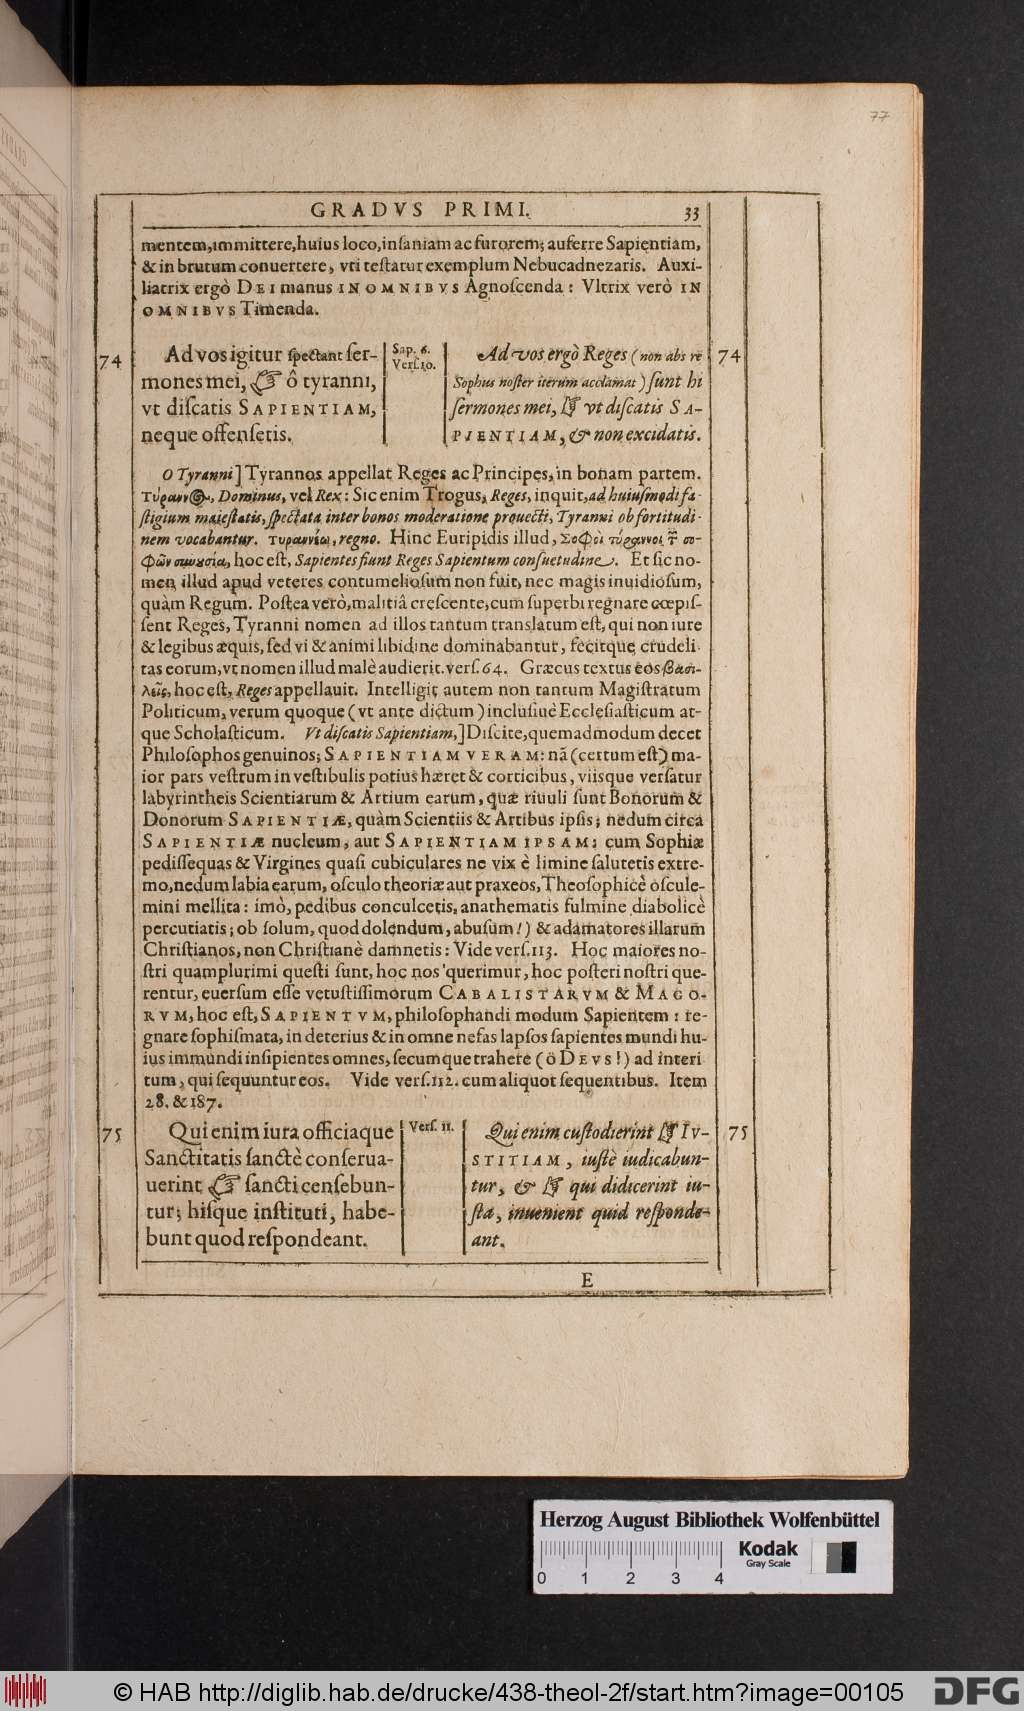 77
GRADVS PRIMI. 33
mentem, immittere, huius loco, inſaniam ac furorem; auferre Sapientiam,
& in brutum conuertere, vti teſtatur exemplum Nebucadnezaris. Auxi-
liatrix ergò DEI manus IN OMNIBVS Agnoſcenda: Vltrix verò IN
OMNIBVS Timenda.
74
Ad vos igitur ſpectant ſer-
mones mei, ☞ ô tyranni,
vt diſcatis SAPIENTIAM,
neque offenſetis.
Sap. 6.
Verſ. 10.
Ad vos ergò Reges (non abs re
Sophus noſter iterum acclamat) ſunt hi
ſermones mei, ☞ vt diſcatis SA-
PIENTIAM, & non excidatis.
74
O Tyranni] Tyrannos appellat Reges ac Principes, in bonam partem.
Dominus, vel Rex: Sic enim Trogus, Reges, inquit, ad huiuſmodi fa-
ſtigium maieſtatis, ſpectata inter bonos moderatione prouecti, Tyranni ob fortitudi-
nem vocabantur. regno. Hinc Euripidis illud, Σοφοὶ τύραννοι
hoc eſt, Sapientes fiunt Reges Sapientum conſuetudine. Et ſic no-
men illud apud veteres contumelioſum non fuit, nec magis inuidioſum,
quàm Regum. Poſtea verò, malitiâ creſcente, cum ſuperbi regnare cœpiſ-
ſent Reges, Tyranni nomen ad illos tantum translatum eſt, qui non iure
& legibus æquis, ſed vi & animi libidine dominabantur, fecitque crudeli-
tas eorum, vt nomen illud malè audierit. verſ. 64. Græcus textus eos βασι-
λεῖς, hoc eſt, Reges appellauit. Intelligit autem non tantum Magiſtratum
Politicum, verum quoque (vt ante dictum) incluſiuè Eccleſiaſticum at-
que Scholaſticum. Vt diſcatis Sapientiam,] Diſcite, quemadmodum decet
Philoſophos genuinos; SAPIENTIAM VERAM: nã (certum eſt) ma-
ior pars veſtrum in veſtibulis potius hæret & corticibus, viisque verſatur
labyrintheis Scientiarum & Artium earum, quæ riuuli ſunt Bonorum &
Donorum SAPIENTIÆ, quàm Scientiis & Artibus ipſis; nedum circa
SAPIENTIÆ nucleum, aut SAPIENTIAM IPSAM: cum Sophiæ
pediſſequas & Virgines quaſi cubiculares ne vix è limine ſalutetis extre-
mo, nedum labia earum, oſculo theoriæ aut praxeos, Theoſophicè oſcule-
mini mellita: imò, pedibus conculcetis, anathematis fulmine diabolicè
percutiatis; ob ſolum, quod dolendum, abuſum!) & adamatores illarum
Chriſtianos, non Chriſtianè damnetis: Vide verſ. 113. Hoc maiores no-
ſtri quamplurimi queſti ſunt, hoc nos querimur, hoc poſteri noſtri que-
rentur, euerſum eſſe vetuſtiſſimorum CABALISTARVM & MAGO-
RVM, hoc eſt, SAPIENTVM, philoſophandi modum Sapientem: re-
gnare ſophiſmata, in deterius & in omne nefas lapſos ſapientes mundi hu-
ius immundi inſipientes omnes, ſecumque trahere (ô DEVS!) ad interi
tum, qui ſequuntur eos. Vide verſ. 112. cum aliquot ſequentibus. Item
28. & 187.
75
Qui enim iura officiaque
Sanctitatis ſanctè conſerua-
uerint ☞ ſancti cenſebun-
tur; hiſque inſtituti, habe-
bunt quod reſpondeant.
Verſ. 11.
Qui enim cuſtodierint ☞ IV-
STITIAM, iuſtè iudicabun-
tur, & ☞ qui didicerint iu-
ſta, inuenient quid reſponde-
ant.
75
E
Herzog August Bibliothek Wolfenbüttel
Kodak
Gray Scale
0 1 2 3 4
© HAB http://diglib.hab.de/drucke/438-theol-2f/start.htm?image=00105
DFG